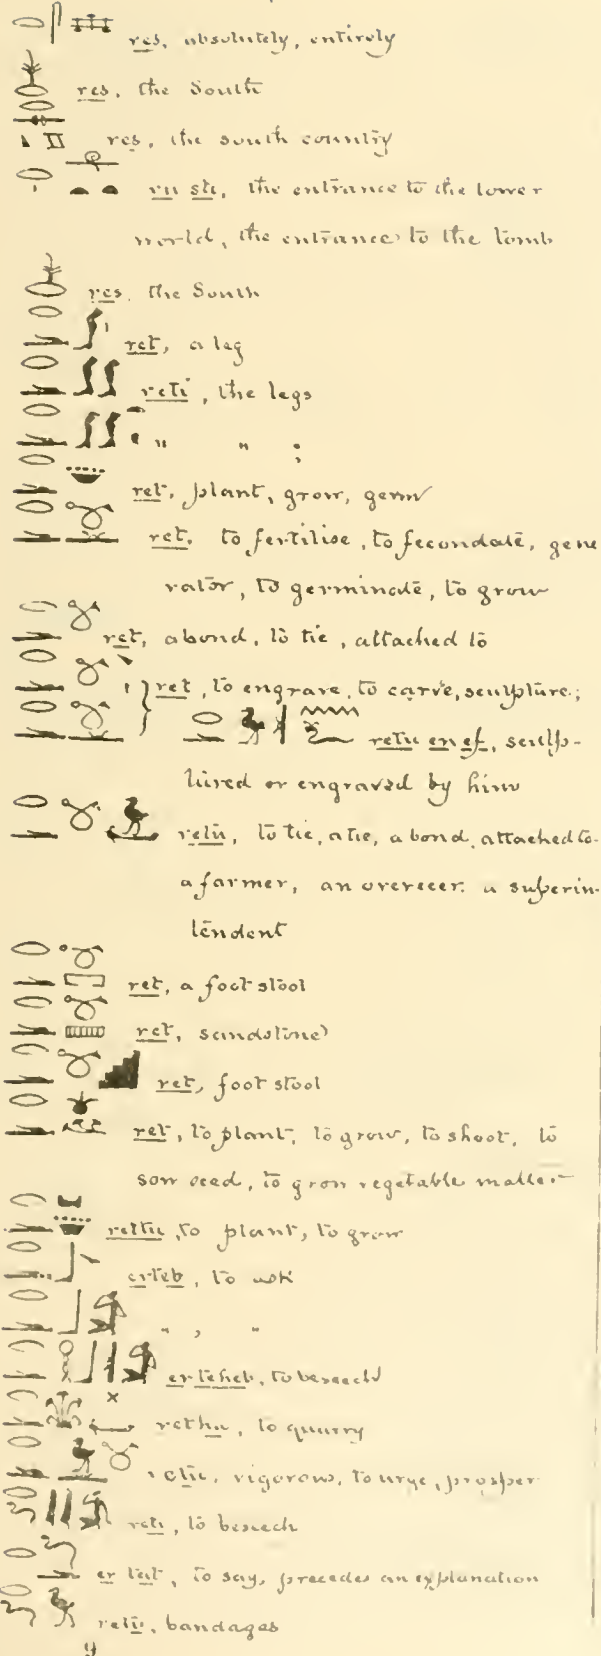 res, absolutely, entirely
res, the South
res, the south country
ru sti, the entrance to the lower
world, the entrance to the tomb
res, the South
ret, a leg
reti, the legs
" " ;
ret, plant, grow, germ
ret, to fertilise, to fecondate, gene
rator, to germinate, to grow
ret, a bond, to tie, attached to
ret, to engrave, to carve, sculpture;
retu en ef, sculp-
tured or engraved by him
retu, to tie, a tie, a bond, attached to
a farmer, an overseer, a superin-
tendent
ret, a foot stool
ret, sandstone
ret, foot stool
ret, to plant, to grow, to shoot, to
sow seed, to grow vegetable matter
rettu, to plant, to grow
erteb, to ask
" , "
erteheb, to beseech
retha, to quarry
retu, vigorous, to urge, prosper
reti, to beseech
er tat, to say, precedes an explanation
retu, bandages
y